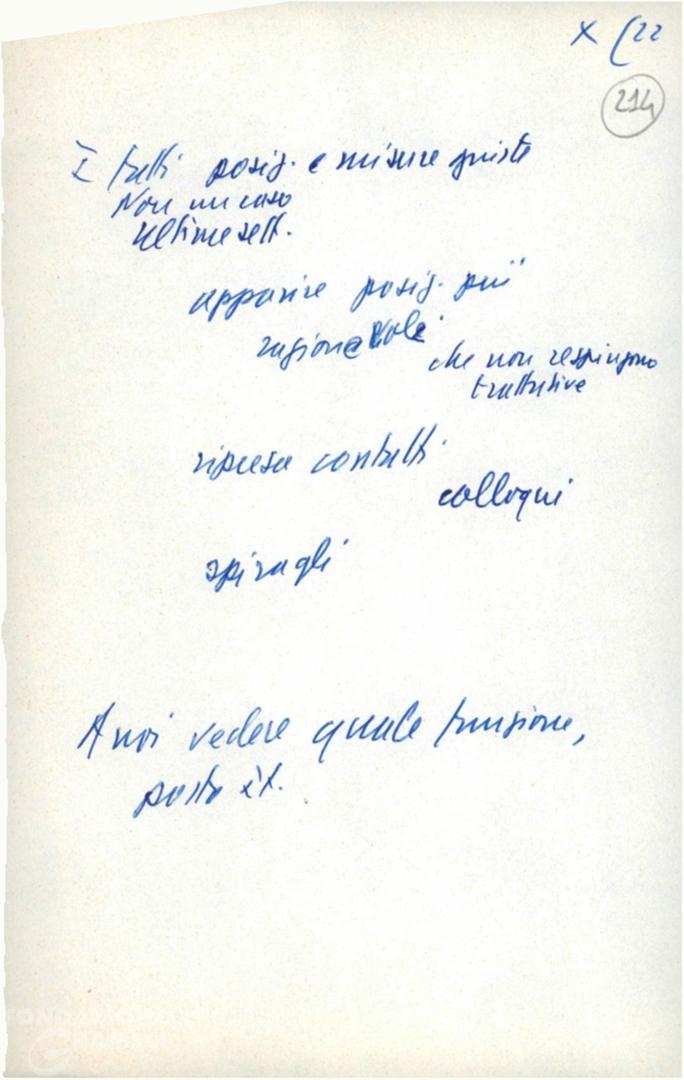 X (22
214
I fatti posiz. e misure giuste
Non un caso
Ultime sett.
apparire posiz. più
ragionevoli
che non respingono
trattative
ripresa contatti
colloqui
spiragli
A noi vedere quale funzione,
posto It.